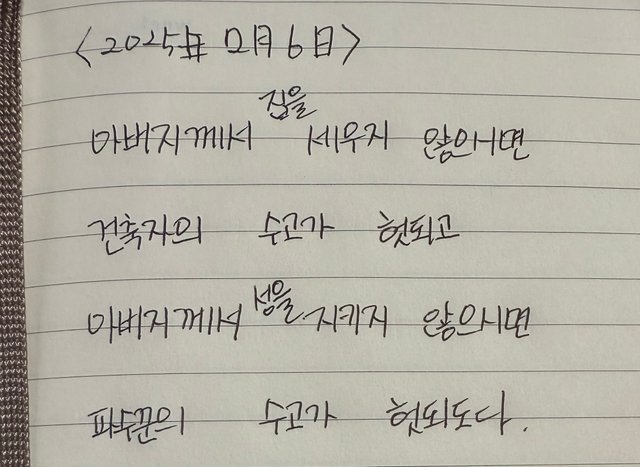 <2025年 02月 6日>
아버지께서 집을 세우지 않으시면
건축자의 수고가 헛되고
아버지께서 성을 지키지 않으시면
파수꾼의 수고가 헛되도다.